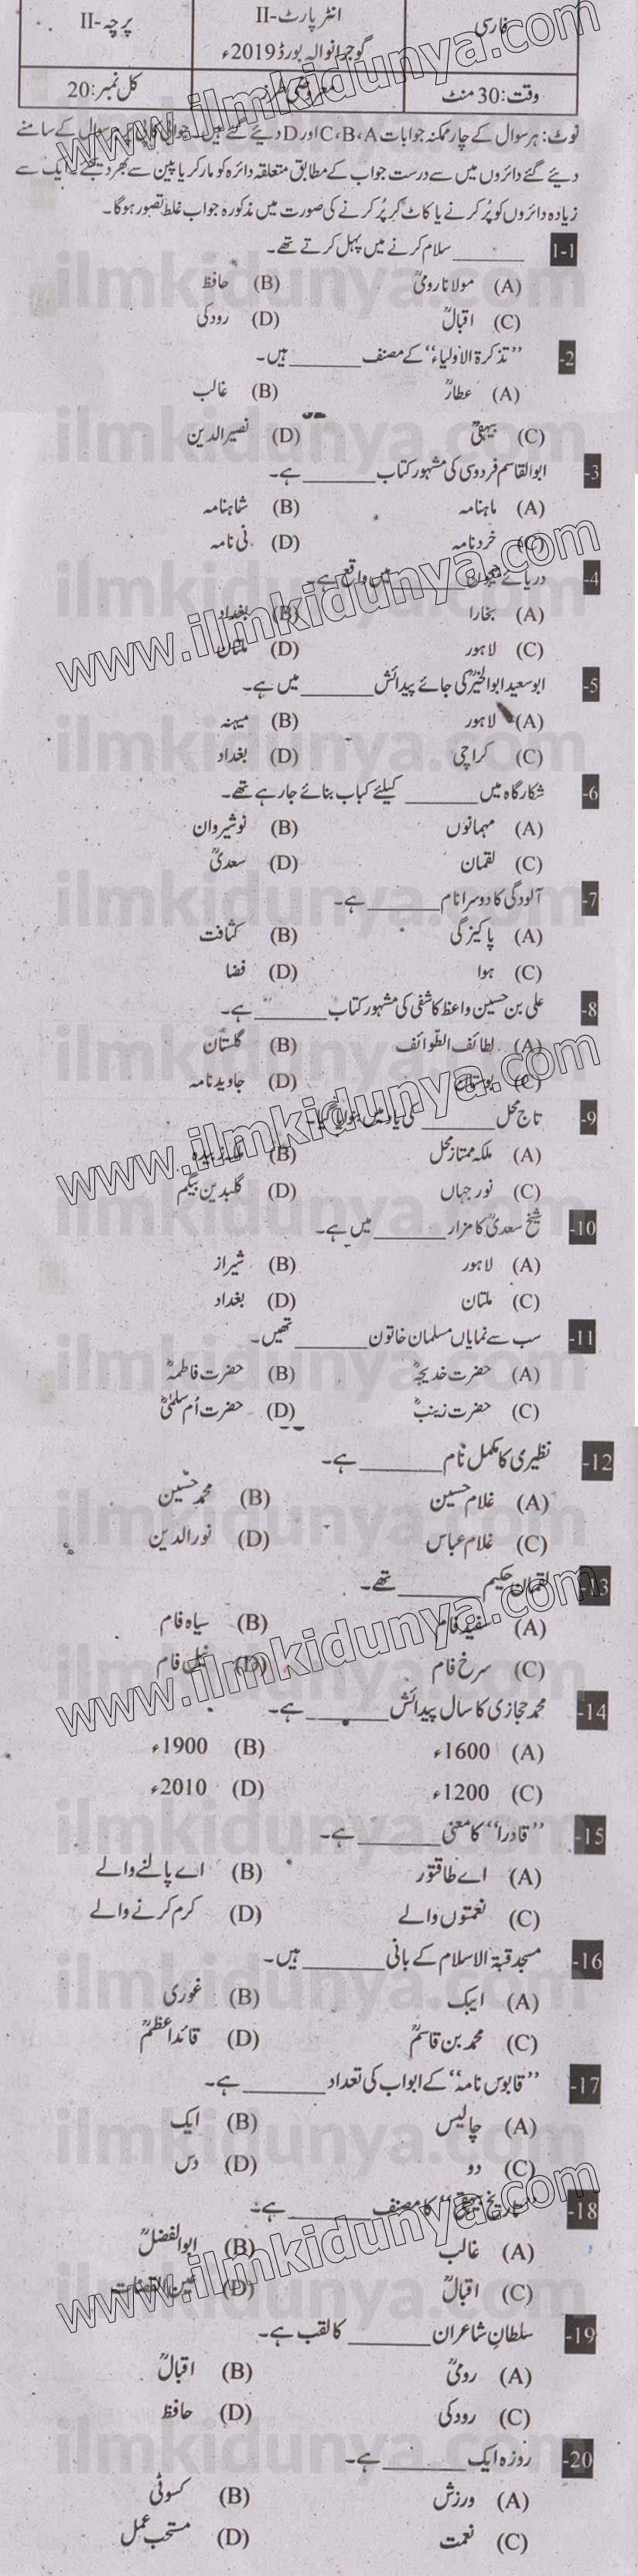 فارسی
انٹر پارٹ-II
گوجرانوالہ بورڈ 2019ء
پرچہ-II
وقت: 30 منٹ
معروضی طرز
کل نمبر: 20
نوٹ: ہر سوال کے چار ممکنہ جوابات A، B، C اور D دیئے گئے ہیں۔ جوابی کاپی پر ہر سوال کے سامنے
دیئے گئے دائروں میں سے درست جواب کے مطابق متعلقہ دائرہ کو مارکر یا پین سے بھر دیجئے۔ ایک سے
زیادہ دائروں کو پُر کرنے یا کاٹ کر پُر کرنے کی صورت میں مذکورہ جواب غلط تصور ہوگا۔
1-1 ______ سلام کرنے میں پہل کرتے تھے۔
(A) مولانا رومیؒ (B) حافظ
(C) اقبالؒ (D) رودکی
-2 ’’تذکرۃ الاولیاء‘‘ کے مصنف ______ ہیں۔
(A) عطارؒ (B) غالب
(C) بیہقیؒ (D) نصیر الدین
-3 ابوالقاسم فردوسی کی مشہور کتاب ______ ہے۔
(A) ماہنامہ (B) شاہنامہ
(C) خردنامہ (D) نی نامہ
-4 دریائے ______ میں واقع ہے۔
(A) بخارا (B) بغداد
(C) لاہور (D) ملتان
-5 ابو سعید ابوالخیرؒ کی جائے پیدائش ______ میں ہے۔
(A) لاہور (B) میہنہ
(C) کراچی (D) بغداد
-6 شکارگاہ میں ______ کیلئے کباب بنائے جا رہے تھے۔
(A) مہمانوں (B) نوشیروان
(C) لقمان (D) سعدیؒ
-7 آلودگی کا دوسرا نام ______ ہے۔
(A) پاکیزگی (B) کثافت
(C) ہوا (D) فضا
-8 علی بن حسین واعظ کاشفی کی مشہور کتاب ______ ہے۔
(A) لطائف الطوائف (B) گلستان
(C) بوستان (D) جاوید نامہ
-9 تاج محل ______ کی یاد میں بنوایا گیا۔
(A) ملکہ ممتاز محل (B) ملکہ زبیدہ
(C) نور جہاں (D) گلبدین بیگم
-10 شیخ سعدیؒ کا مزار ______ میں ہے۔
(A) لاہور (B) شیراز
(C) ملتان (D) بغداد
-11 سب سے نمایاں مسلمان خاتون ______ تھیں۔
(A) حضرت خدیجہؓ (B) حضرت فاطمہؓ
(C) حضرت زینبؓ (D) حضرت اُم سلمیٰؓ
-12 نظیری کا مکمل نام ______ ہے۔
(A) غلام حسین (B) محمد حسین
(C) غلام عباس (D) نور الدین
-13 لقمان حکیم ______ تھے۔
(A) سفید فام (B) سیاہ فام
(C) سرخ فام (D) نیلی فام
-14 محمد حجازی کا سال پیدائش ______ ہے۔
(A) 1600ء (B) 1900ء
(C) 1200ء (D) 2010ء
-15 ’’قادرا‘‘ کا معنی ______ ہے۔
(A) اے طاقتور (B) اے پالنے والے
(C) نعمتوں والے (D) کرم کرنے والے
-16 مسجد قبۃ الاسلام کے بانی ______ ہیں۔
(A) ایبک (B) غوری
(C) محمد بن قاسمؒ (D) قائداعظمؒ
-17 ’’قابوس نامہ‘‘ کے ابواب کی تعداد ______ ہے۔
(A) چالیس (B) ایک
(C) دو (D) دس
-18 ’’تاریخ بیہقی‘‘ کا مصنف ______ ہے۔
(A) غالب (B) ابوالفضلؒ
(C) اقبالؒ (D) عین القضات
-19 سلطانِ شاعران ______ کا لقب ہے۔
(A) رومیؒ (B) اقبالؒ
(C) رودکی (D) حافظ
-20 روزہ ایک ______ ہے۔
(A) ورزش (B) کسوٹی
(C) نعمت (D) مستحب عمل
www.ilmkidunya.com